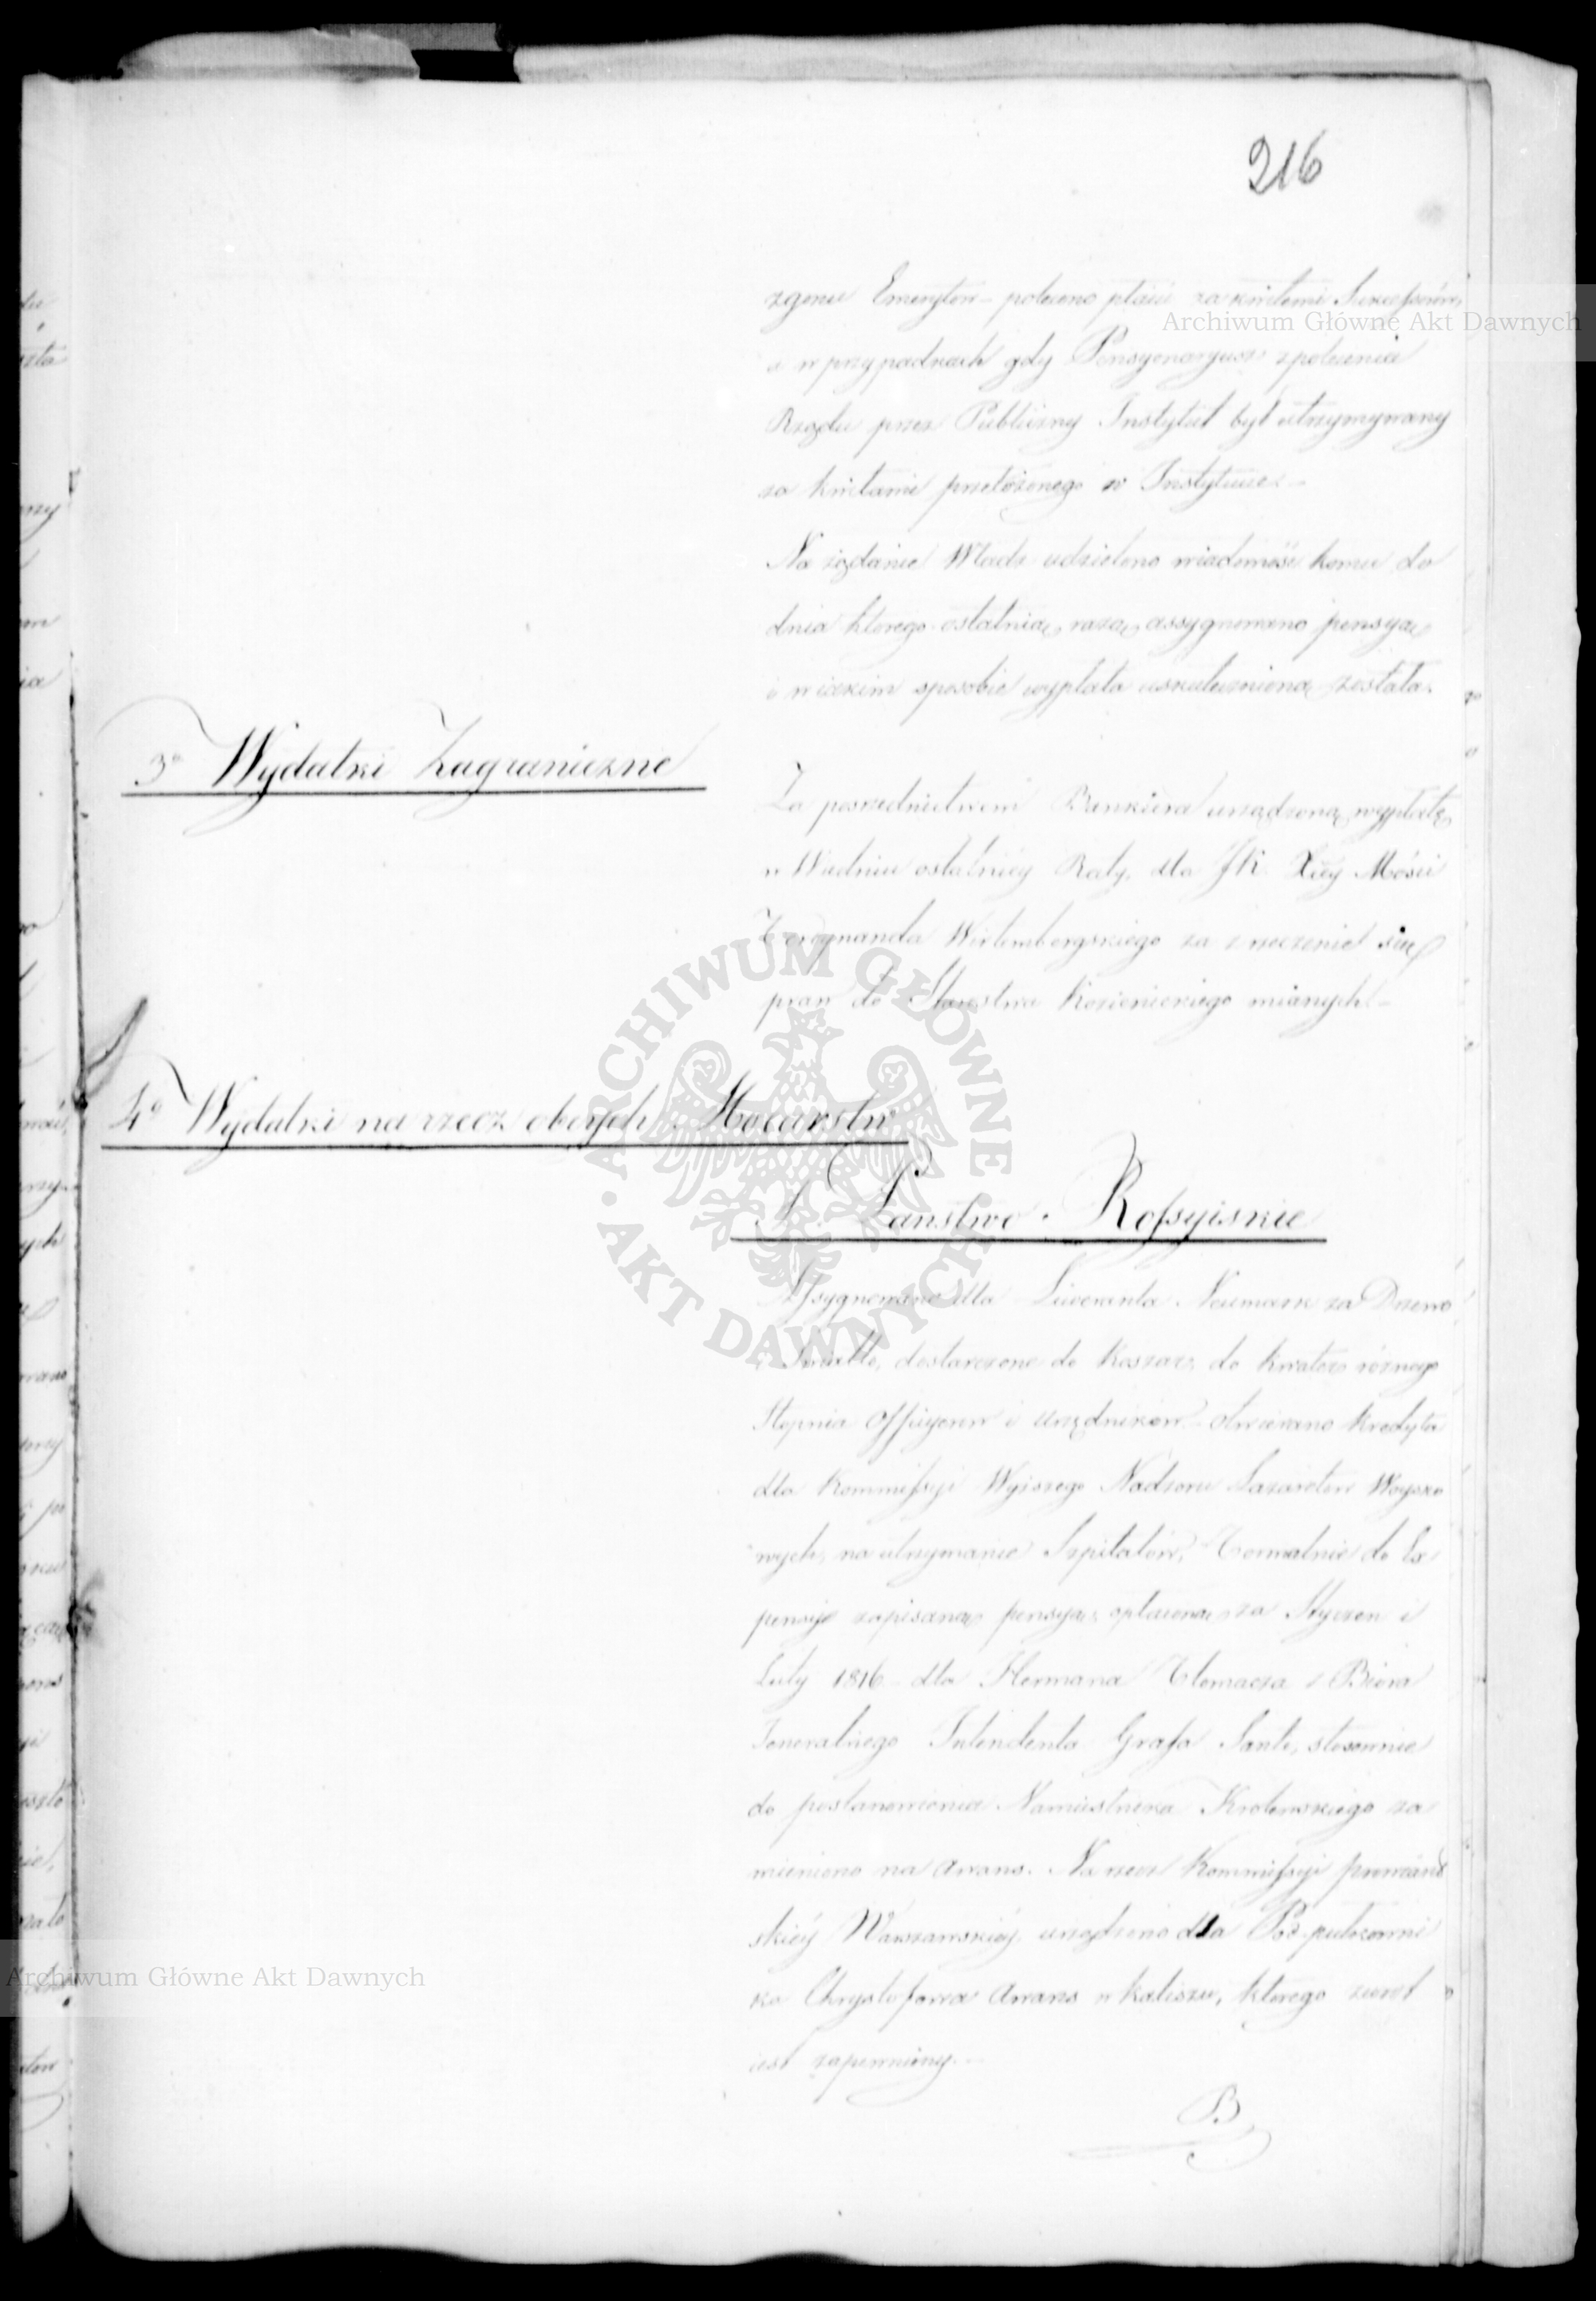 216
zgonu Emerytow – polecono płacić za kwitami Sukcessorów,
a w przypadkach gdy Pensyonaryusz z polecenia
Rządu przez Publiczny Instytut był utrzymywany
za kwitami przełożonego w Instytucie. –
Na żądanie Władz udzielono wiadomość komu do
dnia ktorego ostatnią razą assygnowano pensyą
i w iakim sposobie wypłata uskuteczniona została.
3o Wydatki Zagraniczne
Za posrednictwem Bankiera urządzono wypłatę
w Wiedniu ostatniéy Raty, dla JK. Xcéy Mości
Ferdynanda Wirtembergskiego za zrzeczenie się
praw do Starostwa Kozienickiego mianych. –
4o Wydatki na rzecz obcych Mocarstw
Panstwo Rossyiskie
Assygnowano dla Liweranta Neumark za Drzewo
i Swiatło, dostarczone do Koszar, do kwater rożnego
Stopnia Officyerow i Urzędnikow – otwierano kredyta
dla Kommissyi Wyższego Nadzoru Lazaretow Woysko
wych, na utrzymanie Szpitalow, Formalnie do Ex
pensy zapisaną pensyą, opłaconą za Styczen i
Luty 1816 dla Hermana Tłomacza z Biora
Jeneralnego Intendenta Grafa Santi, stosownie
do postanowienia Namiestnika Krolewskiego za
mieniono na awans. Na rzecz Kommissyi prowiant
skiéy Warszawskiéy urządzono dla Pod-putkowni
ka Chrystoforowa Awans w Kaliszu, ktorego zwrot
iest zapewniony. –
B
Archiwum Główne Akt Dawnych
ARCHIWUM GŁÓWNE AKT DAWNYCH
Archiwum Główne Akt Dawnych